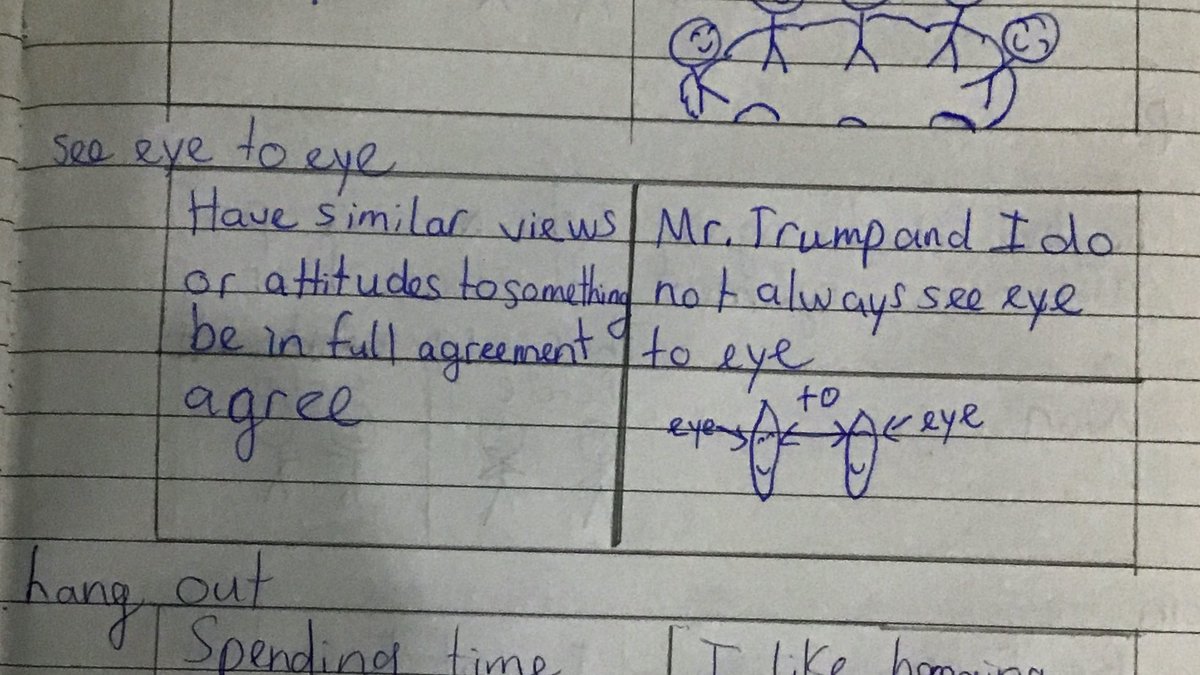 see eye to eye
Have similar views
or attitudes to something
be in full agreement
agree
Mr. Trump and I do
not always see eye
to eye
to
eye eye
hang out
Spending time
I like